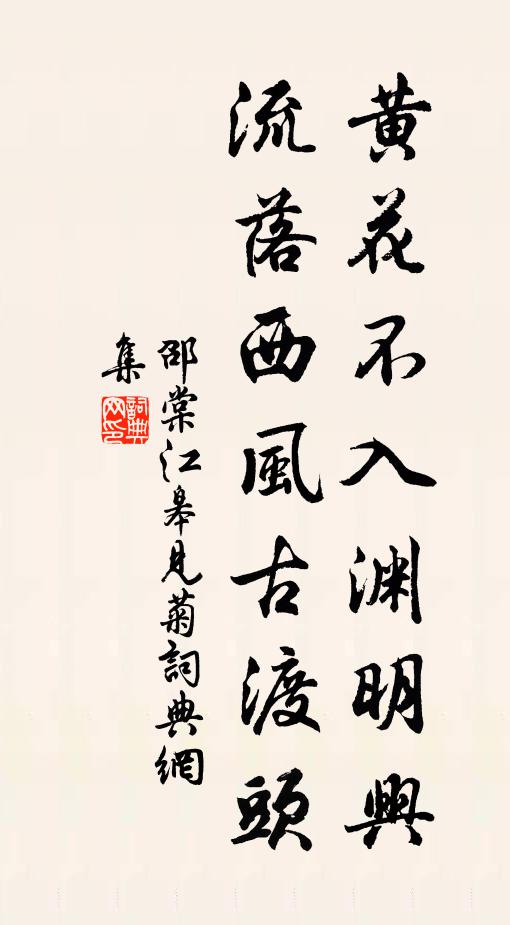 黃花不入淵明興
流落西風古渡頭
邵棠江皋見菊詞典網
集
詞典網印